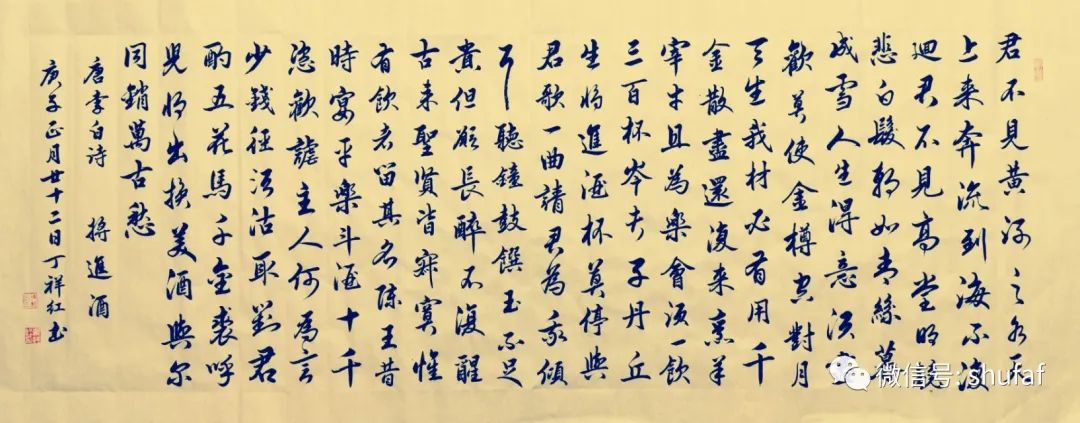 君不見黃河之水天
上来奔流到海不復
迴君不見高堂明鏡
悲白髮朝如青絲暮
成雪人生得意須盡
歡莫使金樽空對月
天生我材必有用千
金散盡還復来烹羊
宰牛且為樂會須一飲
三百杯岑夫子丹丘
生將進酒杯莫停與
君歌一曲請君為我傾
耳聽鐘鼓饌玉不足
貴但願長醉不復醒
古来聖賢皆寂寞惟
有飲者留其名陳王昔
時宴平樂斗酒十千
恣歡謔主人何為言
少錢徑須沽取對君
酌五花馬千金裘呼
兒將出換美酒與尔
同銷萬古愁
唐李白诗 將進酒
庚子正月廿十二日丁祥红书
微信号: shufaf